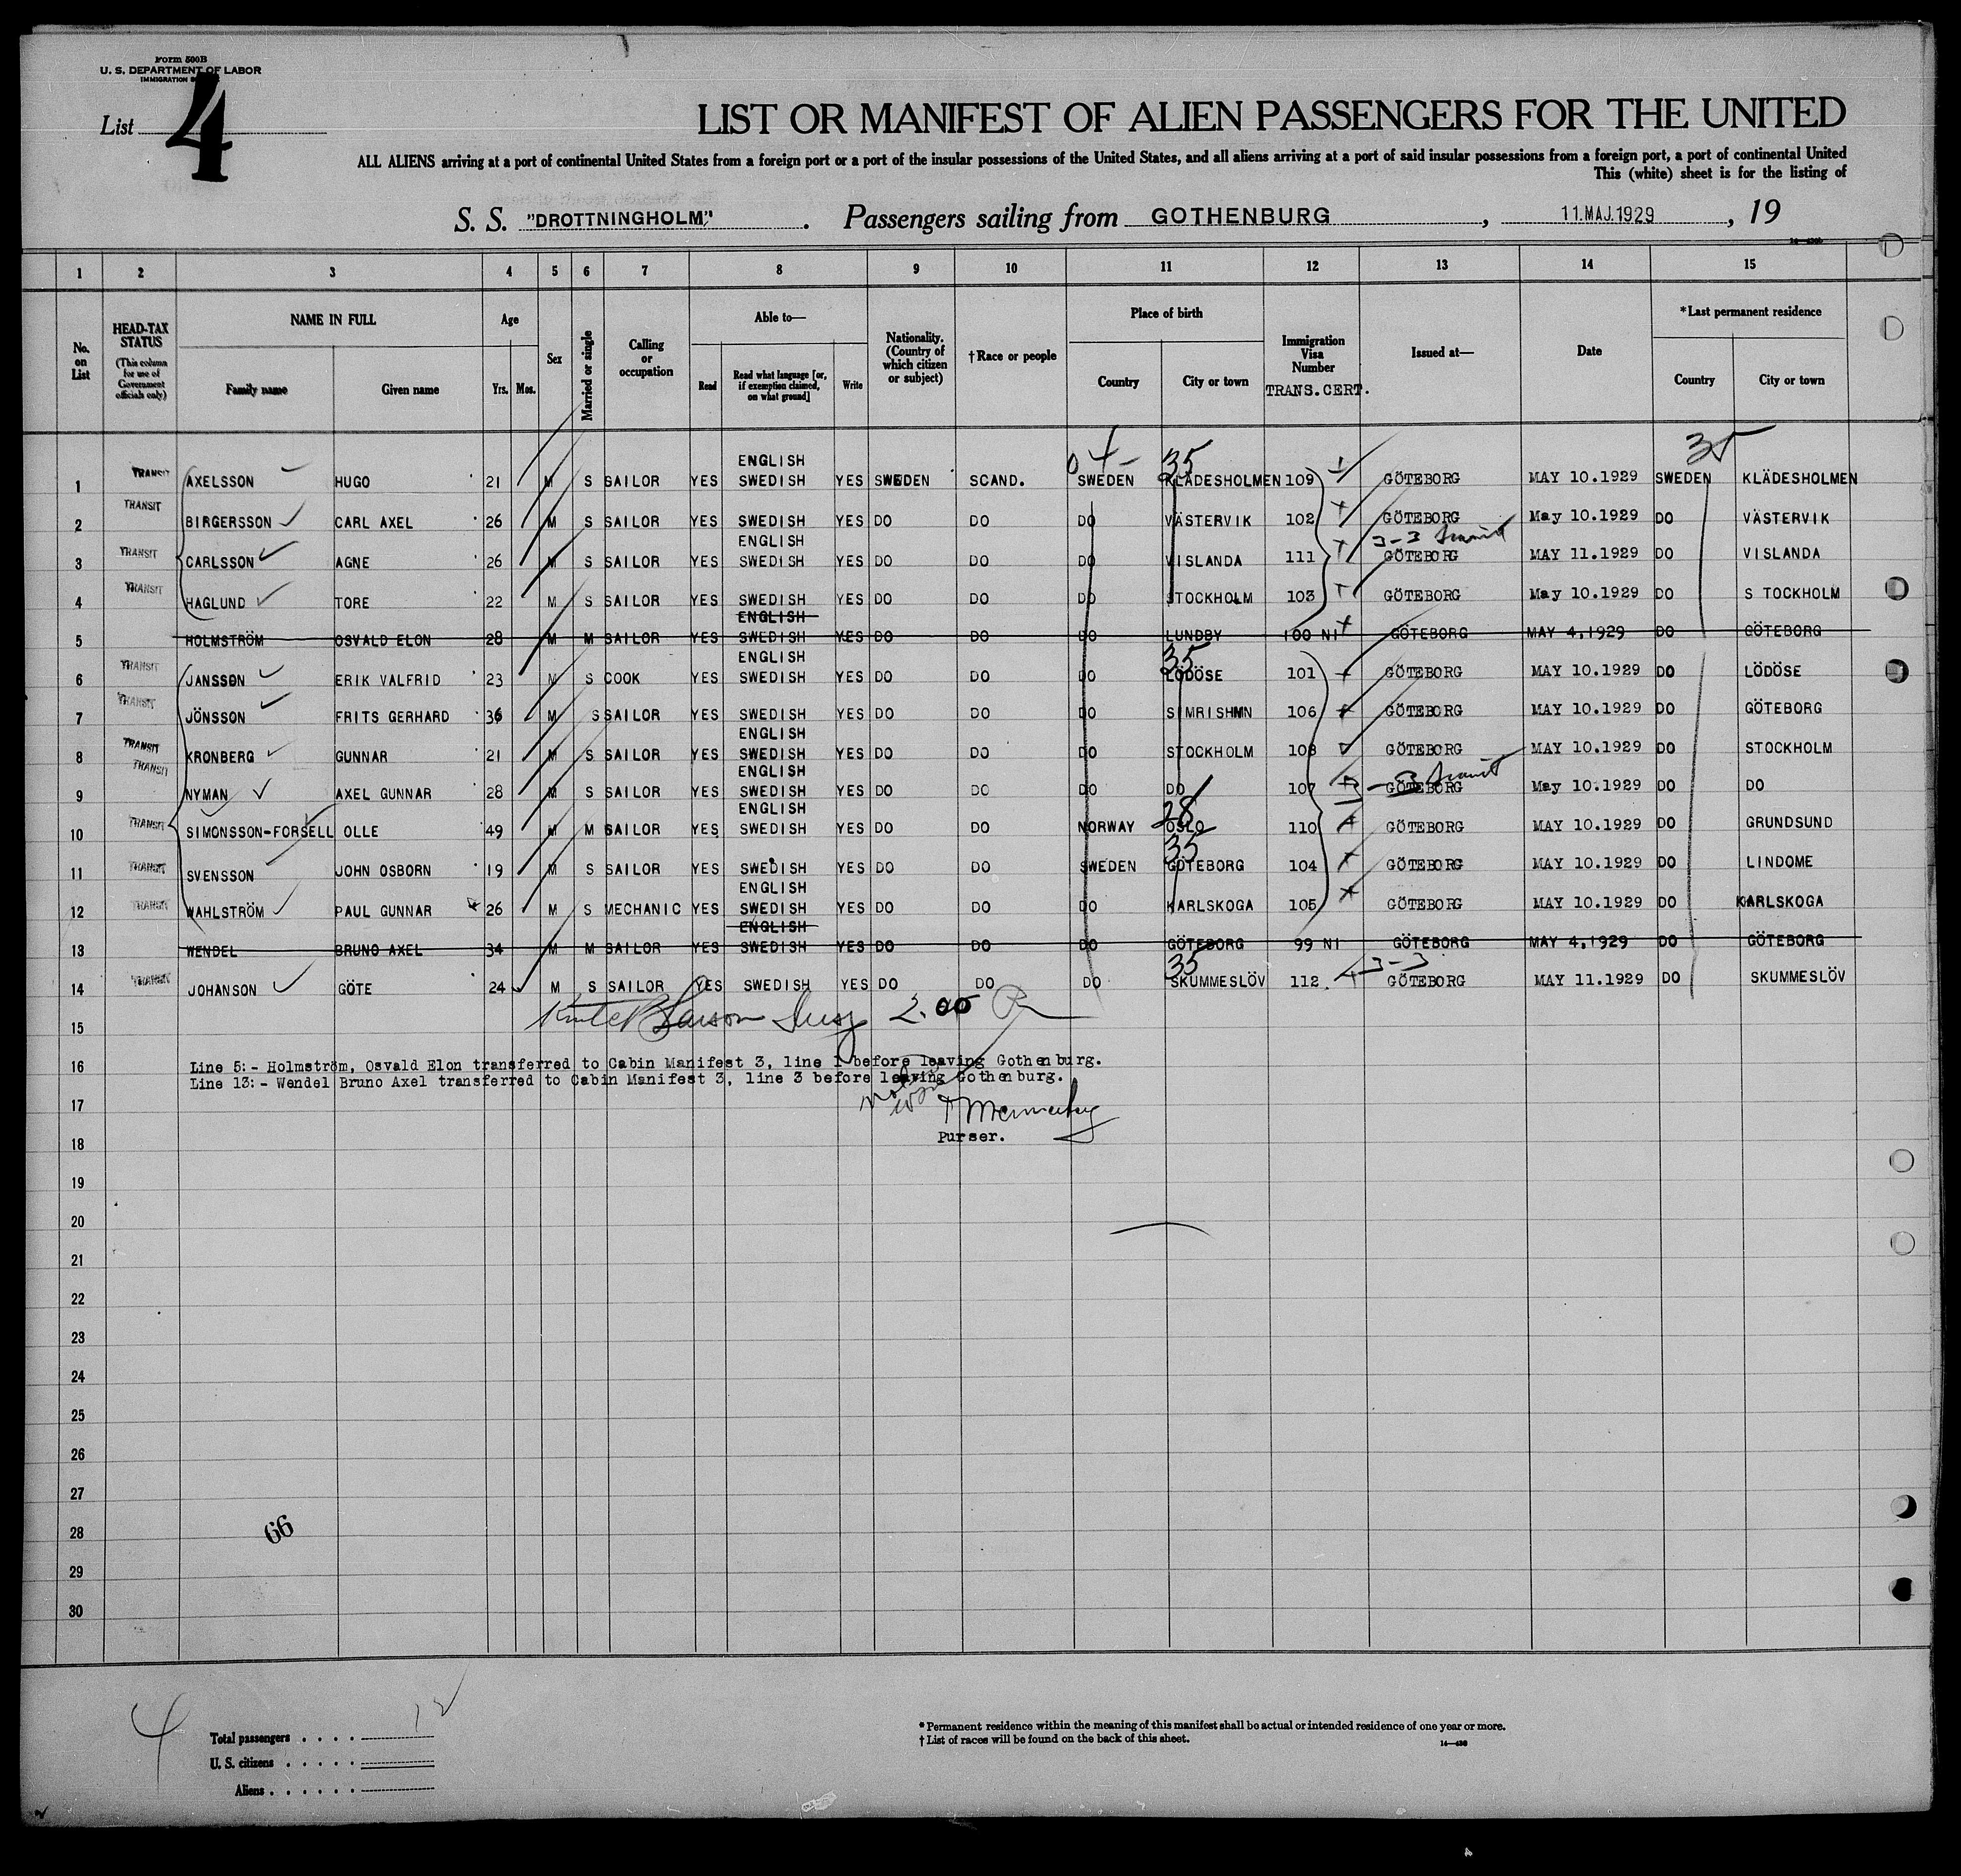 Form 500B
U. S. DEPARTMENT OF LABOR
IMMIGRATION
List 4
LIST OR MANIFEST OF ALIEN PASSENGERS FOR THE UNITED
ALL ALIENS arriving at a port of continental United States from a foreign port or a port of the insular possessions of the United States, and all aliens arriving at a port of said insular possessions from a foreign port, a port of continental United
This (white) sheet is for the listing of
S. S. "DROTTNINGHOLM". Passengers sailing from GOTHENBURG, 11.MAJ.1929, 19
1 2 3 4 5 6 7 8 9 10 11 12 13 14 15
No. on List
HEAD-TAX STATUS (This column for use of Government officials only)
NAME IN FULL Family name Given name
Age Yrs. Mos.
Sex
Married or single
Calling or occupation
Able to— Read Read what language [or, if exemption claimed, on what ground] Write
Nationality. (Country of which citizen or subject)
†Race or people
Place of birth Country City or town
Immigration Visa Number TRANS.CERT.
Issued at—
Date
*Last permanent residence Country City or town
04- 35 35
ENGLISH
1 TRANSIT AXELSSON HUGO 21 M S SAILOR YES SWEDISH YES SWEDEN SCAND. SWEDEN KLÄDESHOLMEN 109 GÖTEBORG MAY 10.1929 SWEDEN KLÄDESHOLMEN
2 TRANSIT BIRGERSSON CARL AXEL 26 M S SAILOR YES SWEDISH YES DO DO DO VÄSTERVIK 102 GÖTEBORG May 10.1929 DO VÄSTERVIK
ENGLISH 3-3 Transit
3 TRANSIT CARLSSON AGNE 26 M S SAILOR YES SWEDISH YES DO DO DO VISLANDA 111 GÖTEBORG MAY 11.1929 DO VISLANDA
4 TRANSIT HAGLUND TORE 22 M S SAILOR YES SWEDISH YES DO DO DO STOCKHOLM 103 GÖTEBORG May 10.1929 DO S TOCKHOLM
ENGLISH
5 HOLMSTRÖM OSVALD ELON 28 M M SAILOR YES SWEDISH YES DO DO DO LUNDBY 100 NI GÖTEBORG MAY 4,1929 DO GÖTEBORG
ENGLISH 35
6 TRANSIT JANSSON ERIK VALFRID 23 M S COOK YES SWEDISH YES DO DO DO LÖDÖSE 101 GÖTEBORG MAY 10.1929 DO LÖDÖSE
7 TRANSIT JÖNSSON FRITS GERHARD 36 M S SAILOR YES SWEDISH YES DO DO DO SIMRISHMN 106 GÖTEBORG MAY 10.1929 DO GÖTEBORG
ENGLISH
8 TRANSIT KRONBERG GUNNAR 21 M S SAILOR YES SWEDISH YES DO DO DO STOCKHOLM 108 GÖTEBORG MAY 10.1929 DO STOCKHOLM
ENGLISH 3-3 Transit
9 TRANSIT NYMAN AXEL GUNNAR 28 M S SAILOR YES SWEDISH YES DO DO DO DO 107 GÖTEBORG May 10.1929 DO DO
ENGLISH 28
10 TRANSIT SIMONSSON-FORSELL OLLE 49 M M SAILOR YES SWEDISH YES DO DO NORWAY OSLO 110 GÖTEBORG MAY 10.1929 DO GRUNDSUND
35
11 TRANSIT SVENSSON JOHN OSBORN 19 M S SAILOR YES SWEDISH YES DO DO SWEDEN GÖTEBORG 104 GÖTEBORG MAY 10.1929 DO LINDOME
ENGLISH
12 TRANSIT WAHLSTRÖM PAUL GUNNAR 26 M S MECHANIC YES SWEDISH YES DO DO DO KARLSKOGA 105 GÖTEBORG MAY 10.1929 DO KARLSKOGA
ENGLISH
13 WENDEL BRUNO AXEL 34 M M SAILOR YES SWEDISH YES DO DO DO GÖTEBORG 99 NI GÖTEBORG MAY 4,1929 DO GÖTEBORG
35 3-3
14 TRANSIT JOHANSON GÖTE 24 M S SAILOR YES SWEDISH YES DO DO DO SKUMMESLÖV 112 GÖTEBORG MAY 11.1929 DO SKUMMESLÖV
15 Larson 2.00
16 Line 5:- Holmström, Osvald Elon transferred to Cabin Manifest 3, line 1 before leaving Gothenburg.
Line 13:- Wendel Bruno Axel transferred to Cabin Manifest 3, line 3 before leaving Gothenburg.
17
18 Purser.
19
20
21
22
23
24
25
26
27
28 66
29
30
4
Total passengers . . . . 12
U. S. citizens . . . . .
Aliens . . . . . .
* Permanent residence within the meaning of this manifest shall be actual or intended residence of one year or more.
† List of races will be found on the back of this sheet.